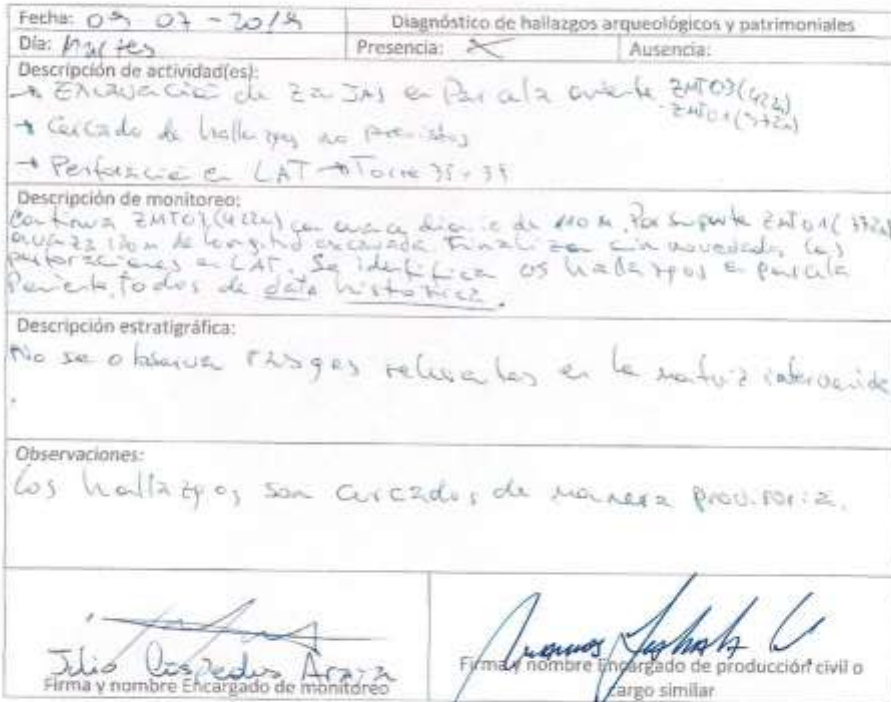 Fecha: 09 07 - 2019 Diagnóstico de hallazgos arqueológicos y patrimoniales
Día: Martes Presencia: X Ausencia:
Descripción de actividad(es):
→ Excavación de zanjas en Parcela oriente. ZMT03(422n)
ZMT01(372n)
→ Cercado de hallazgos no previstos
→ Perforación en LAT → Torre 35 - 39
Descripción de monitoreo:
Continua ZMT03(422n) con avance diario de 110 m. Por su parte ZMT01(372n)
avanza 130 m de longitud excavada. Finalizan sin novedades las
perforaciones en LAT. Se identifica 05 hallazgos en parcela
Poniente, todos de data histórica.
Descripción estratigráfica:
No se observa rasgos relevantes en la matriz intervenida
.
Observaciones:
Los hallazgos son cercados de manera provisoria.
Julio Céspedes Araya
Firma y nombre Encargado de monitoreo
Firma y nombre Encargado de producción civil o
cargo similar